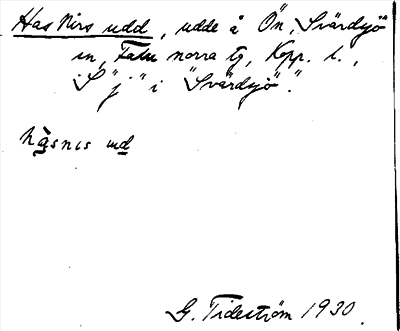 Has Nirs udd, udde å Ön, Svärdsjö
sn, Falu norra tg, Kopp. l.,
"S" "j" i "Svärdsjö".
hàsnıs ud
G. Tideström 1930.